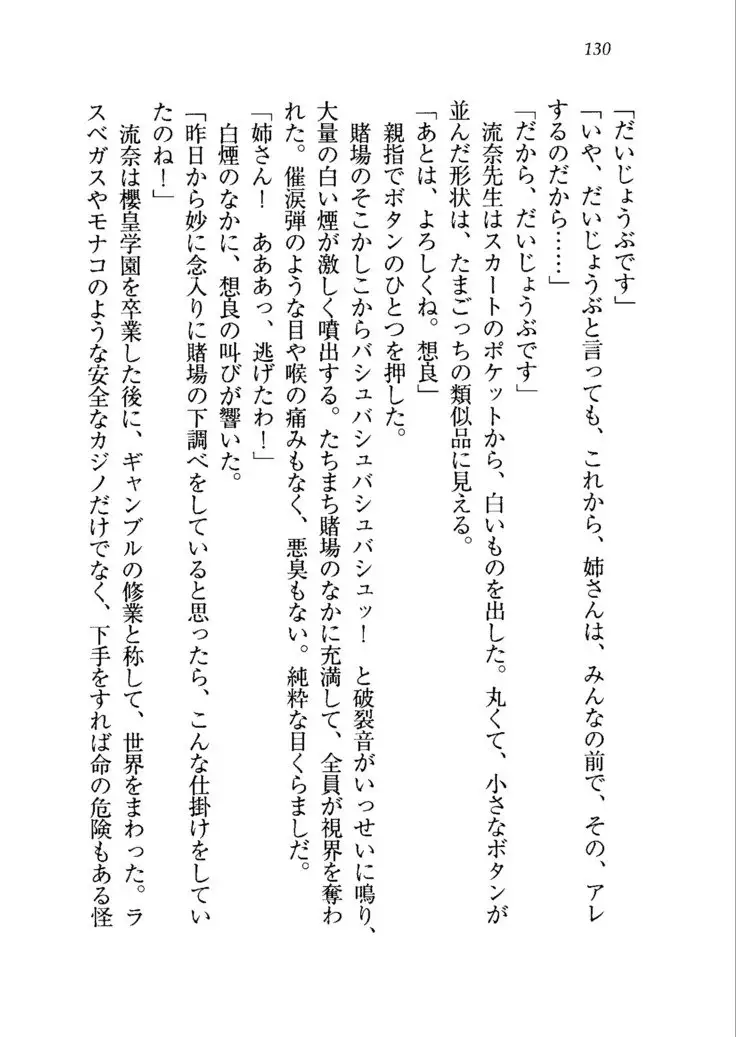 130
「だいじょうぶです」
「いや、だいじょうぶと言っても、これから、姉さんは、みんなの前で、その、アレ
するのだから……」
「だから、だいじょうぶです」
流奈先生はスカートのポケットから、白いものを出した。丸くて、小さなボタンが
並んだ形状は、たまごっちの類似品に見える。
「あとは、よろしくね。想良」
親指でボタンのひとつを押した。
賭場のそこかしこからバシュバシュバシュバシュッ！　と破裂音がいっせいに鳴り、
大量の白い煙が激しく噴出する。たちまち賭場のなかに充満して、全員が視界を奪わ
れた。催涙弾のような目や喉の痛みもなく、悪臭もない。純粋な目くらましだ。
「姉さん！　あああっ、逃げたわ！」
白煙のなかに、想良の叫びが響いた。
「昨日から妙に念入りに賭場の下調べをしていると思ったら、こんな仕掛けをしてい
たのね！」
流奈は櫻皇学園を卒業した後に、ギャンブルの修業と称して、世界をまわった。ラ
スベガスやモナコのような安全なカジノだけでなく、下手をすれば命の危険もある怪